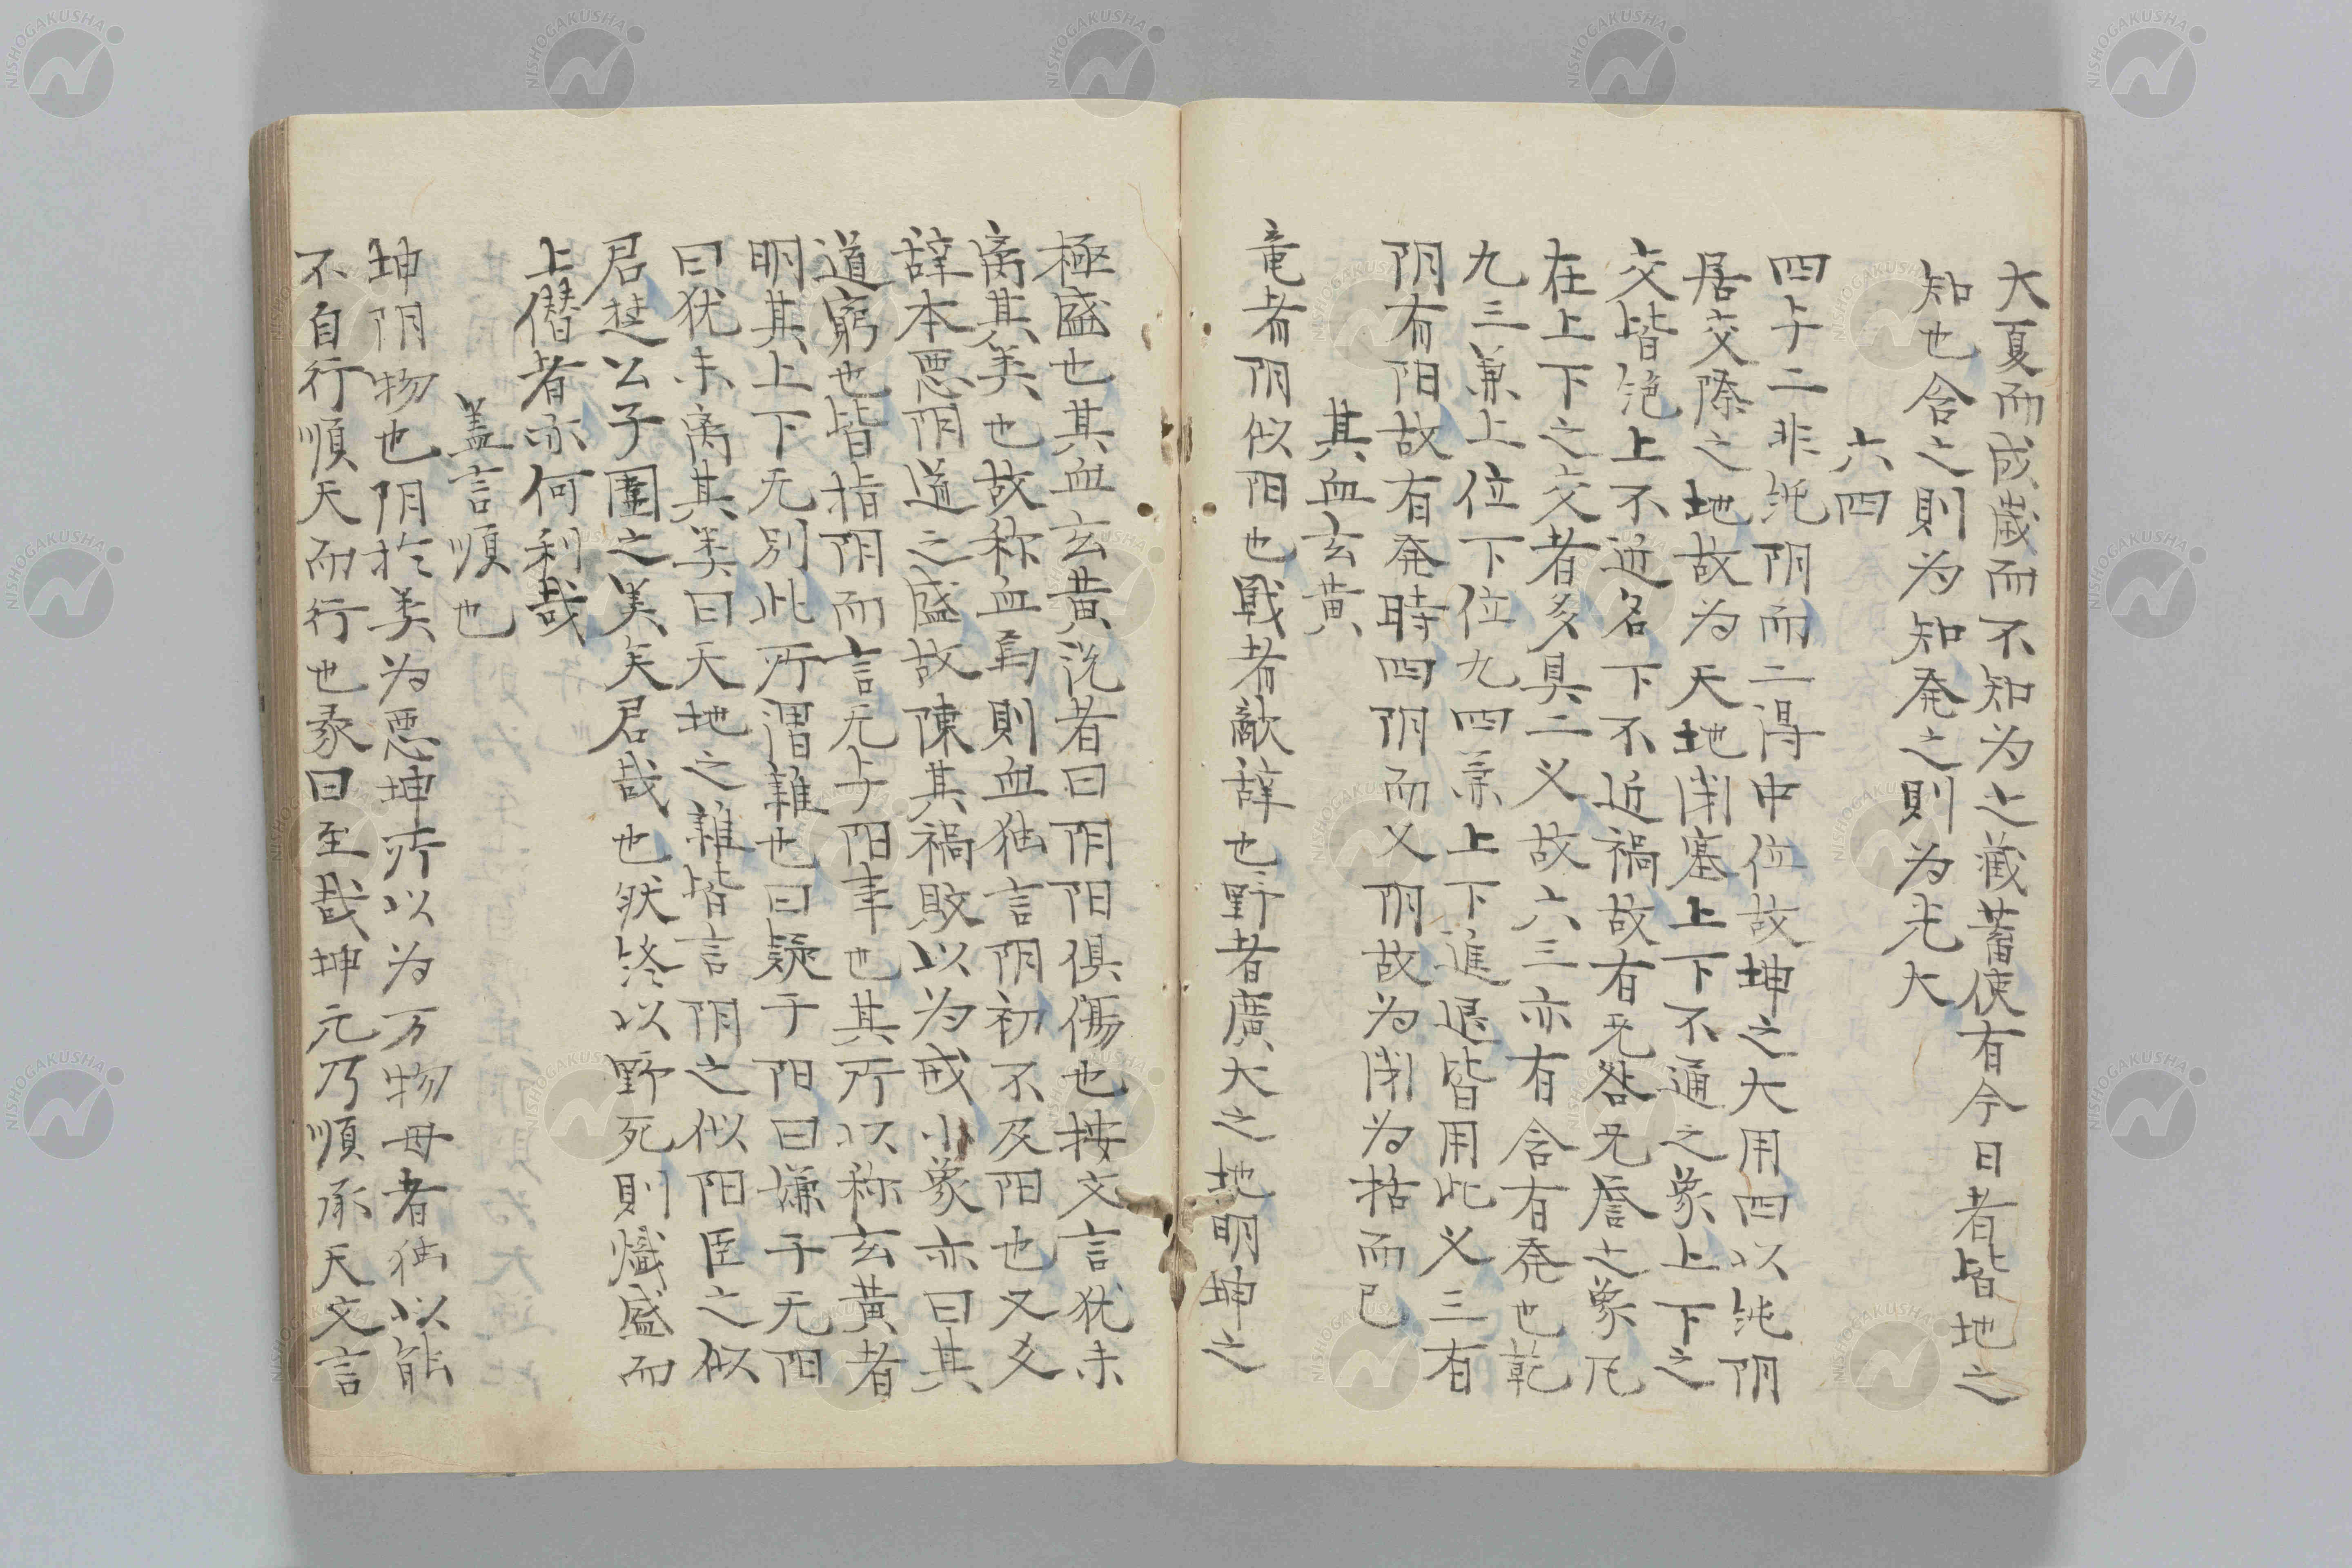 大夏而成歳而不知为之藏蓄使有今日者皆地之
知也含之則为知発之則为光大
六四
四与二非純阴而二得中位故坤之大用四以純阴
居交際之地故为天地闭塞上下不通之象上下之
交皆绝上不近名下不近禍故有无咎无誉之象凡
在上下之交者多具二义故六三亦有含有発也乾
九三兼上位下位九四兼上下進退皆用此义三有
阴有阳故有発時四阴而又阴故为闭为括而已
其血玄黃
竜者阴似阳也戰者敵辞也野者廣大之地明坤之
極盛也其血玄黃説者曰阴阳俱傷也按文言犹未
离其美也故称血焉則血独言阴初不及阳也又爻
辞本惡阴道之盛故陳其禍敗以为戒小象亦曰其
道窮也皆指阴而言无与阳事也其所以称玄黃者
明其上下无别此所谓雜也曰疑于阳曰嫌于无阳
曰犹未离其类曰天地之雜皆言阴之似阳臣之似
君楚公子圍之美矣君哉也然終以野死則熾盛而
上僭者亦何利哉
盖言順也
坤阴物也阴於类为惡坤所以为万物母者独以能
不自行順天而行也彖曰至哉坤元乃順承天文言
NISHOGAKUSHA